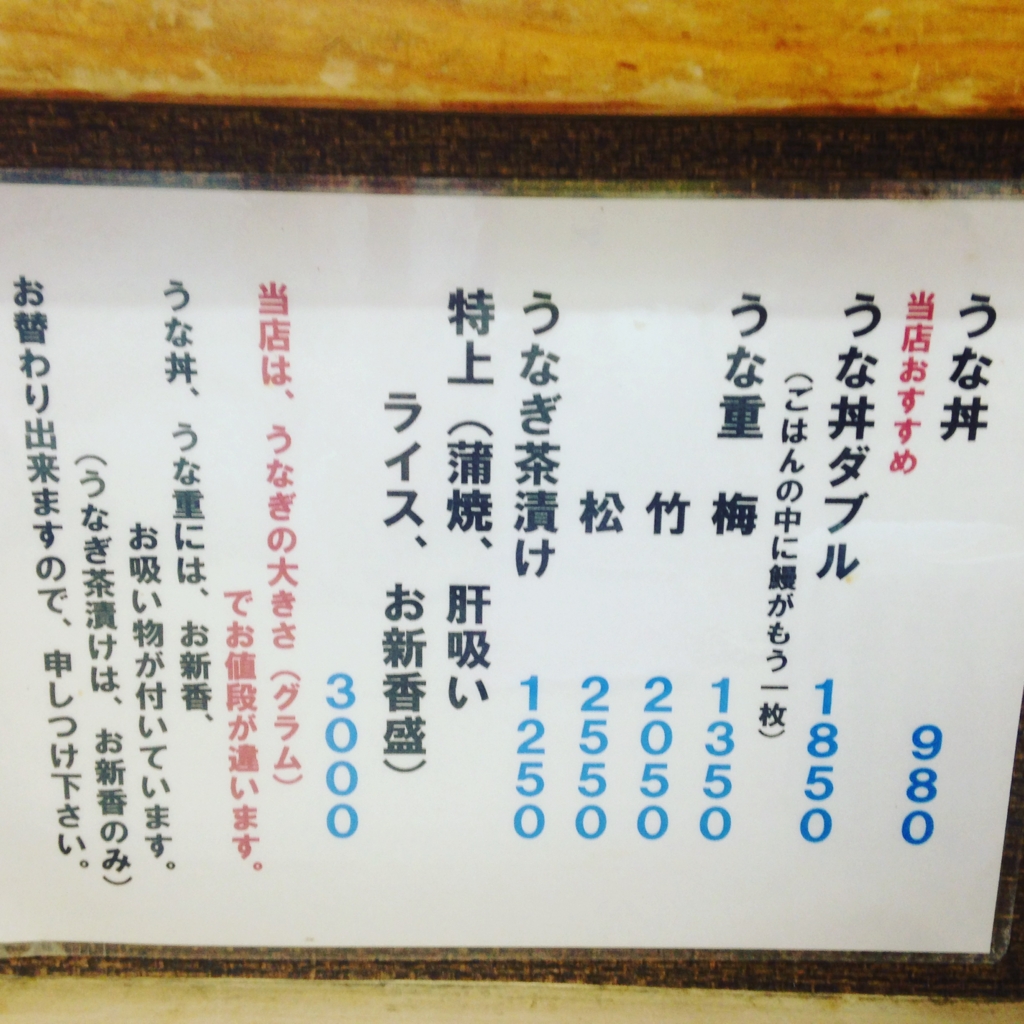 うな丼 980
当店おすすめ
うな丼ダブル 1850
(ごはんの中に鰻がもう一枚)
うな重 梅 1350
竹 2050
松 2550
うなぎ茶漬け 1250
特上(蒲焼、肝吸い
ライス、お新香盛)
3000
当店は、うなぎの大きさ(グラム)
でお値段が違います。
うな丼、うな重には、お新香、
お吸い物が付いています。
(うなぎ茶漬けは、お新香のみ)
お替わり出来ますので、申しつけ下さい。